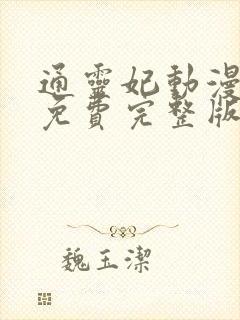 通靈妃動漫
免費完整版
魏玉潔